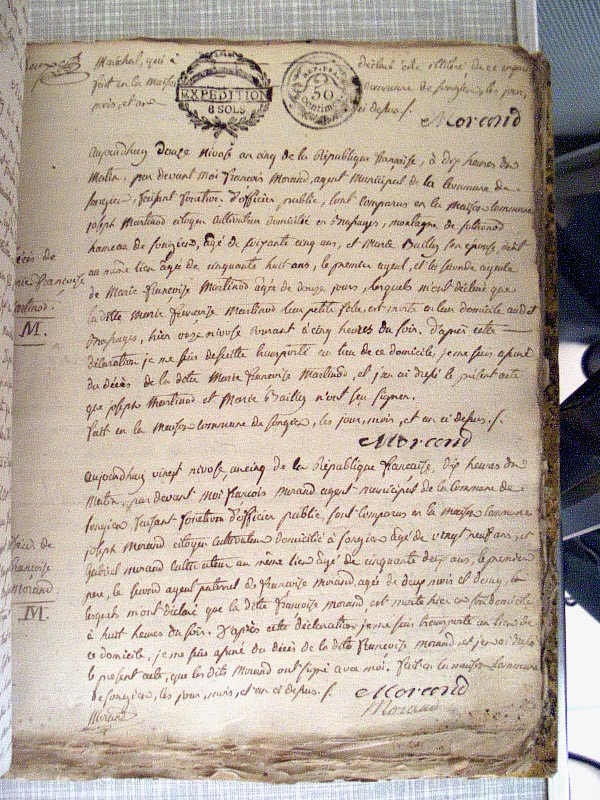 Maréchal, qui à déclaré être illitéré de ce enquis
fait en la maison commune de songieu, les jour,
mois, et an ci depus /.
EXPEDITION
6 SOLS
50
centimes
Morand
aujourdhuy Douze nivose an cinq de la République française, à dix heures du
Matin, par devant Moi françois Morand, agent Municipal de la commune de
songieu, faisant fonction d'officier public, sont comparus en la maison commune
joseph Martinod citoyen cultivateur domicilié en montagne de
hameau de songieu, âgé de soixante cinq ans, et Marie Bailly son epouse,
au même lieu âgée de cinquante huit ans, le premier ayeul, et la seconde ayeule
de Marie françoise Martinod agée de douze jours, lesquels m'ont déclaré que
la dite Marie françoise Martinod leur petite fille, est morte en leur domicile audit
hier onze nivose courant à cinq heures du soir. d'après cette
déclaration je me suis de suitte transporté au lieu de ce domicile, je me suis assuré
du décès de la dite Marie françoise Martinod, et j'en ai dressé le présent acte
que joseph Martinod et Marie Bailly n'ont seu signer.
fait en la Maison commune de songieu, les jour, mois, et an ci depus /.
Morand
Décès de
Marie françoise
Martinod.
M.
aujourdhuy vingt nivose an cinq de la République française, dix heures du
Matin, par devant Moi françois Morand agent municipal de la commune de
songieu faisant fonction d'officier public, sont comparus en la maison commune
joseph Morand citoyen cultivateur domicilié à songieu âgé de vingt neuf ans, et
gabriel morand cultivateur au même lieu âgé de cinquante deux ans, le premier
pere, le second ayeul paternel de françoise Morand, agée de deux mois et demy,
lesquels m'ont déclaré que la dite françoise morand, est morte hier en son domicile
à huit heures du soir. D'après cette déclaration, je me suis transporté au lieu de
ce domicile, je me suis assuré du décès de la dite françoise morand, et j'en ai dressé
le présent acte, que les dits Morand ont signé avec moi. fait en la maison commune
de songieu, les jour, mois, et an ci depus /.
Morand
Morand
Morand
Décès de
françoise
Morand
M.